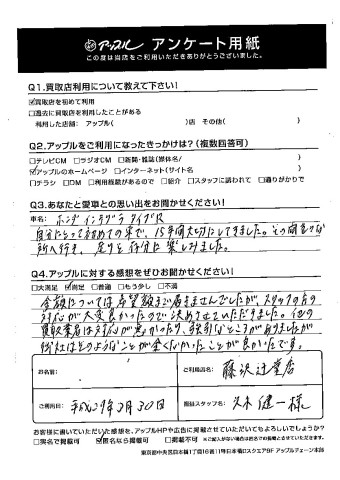 アップル アンケート用紙
この度は当店をご利用いただきありがとうございました。
Q1.買取店利用について教えて下さい!
☑買取店を初めて利用
□過去に買取店を利用したことがある
利用した店舗: アップル( )店 その他( )
Q2.アップルをご利用になったきっかけは?(複数回答可)
□テレビCM □ラジオCM □新聞・雑誌(媒体名/ )
☑アップルのホームページ □インターネット(サイト名 )
□チラシ □DM □利用経験があるので □紹介 □スタッフに誘われて □通りがかりで
Q3.あなたと愛車との思い出をお聞かせください!
車名: ホンダ インテグラ タイプR
自分にとって初めての車で、15年間大切にしてきました。その間色々な
所へ行き、走りを存分に楽しみました。
Q4.アップルに対する感想をぜひお聞かせください!
□大満足 ☑満足 □普通 □もう少し □不満
金額については希望額まで届きませんでしたが、スタッフの方の
対応が大変良かったので決めさせていただきました。他の
買取業者は対応が悪かったり、強引なところがありましたが
御社はそのようなことが全くなかったことが良かったです。
お名前:
ご利用店名: 藤沢辻堂店
ご利用日: 平成29年3月30日
担当スタッフ名: 健一様
お客様に書いていただいた感想を、アップルHPや広告に掲載させていただいてもよろしいでしょうか?
□実名で掲載可 ☑匿名なら掲載可 □掲載不可 ※ご記入がない場合は匿名での掲載とさせていただきます。
東京都中央区日本橋1丁目16番11号日本橋Dスクエア9F アップルチェーン本部